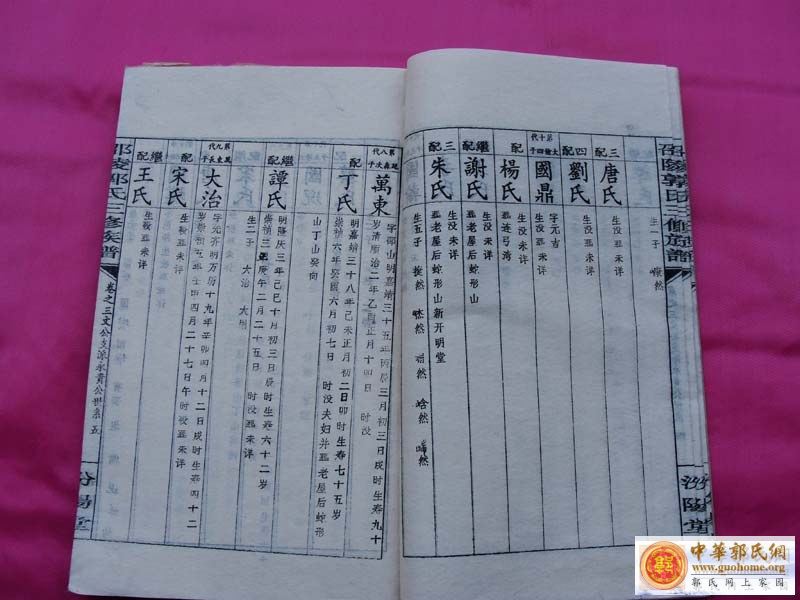 邵陵郭氏三修族譜
汾陽堂
三配
唐氏
生一子
四配
劉氏
生没未详
第十代
國鼎
字元吉
生没葬未详
配
楊氏
生没未详
葬连弓湾
繼配
謝氏
生没未详
葬老屋后蛇形山
三配
朱氏
生没未详
葬老屋后蛇形山新开明堂
生五子
第八代
萬東
字邵山明嘉靖三十五年丙辰三月初三日戌时生寿九十
岁清顺治二年乙酉 月十四日 时没
配
丁氏
明嘉靖三十八年己未正月初二日卯时生寿七十五岁
崇祯六年癸酉六月初七日 时没夫妇并葬老屋后蛇形
山丁山癸向
繼配
譚氏
明隆庆三年己巳十月初三日辰时生寿六十二岁
崇祯三年庚午二月二十五日 时没葬未详
生二子 大治 大明
第九代
萬東長子
大治
字元齐明万历十九年辛卯四月十二日戌时生寿四十二
岁崇祯五年壬申四月二十七日午时没葬未详
配
宋氏
生殁葬未详
繼配
王氏
生殁葬未详
邵陵郭氏三修族譜
卷之三文公支派永貴公世系 五
汾陽堂
中華郭氏網
www.guohome.org
郭氏网上家园